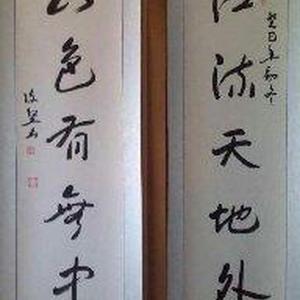 江流天地外
癸巳年初冬
山色有無中